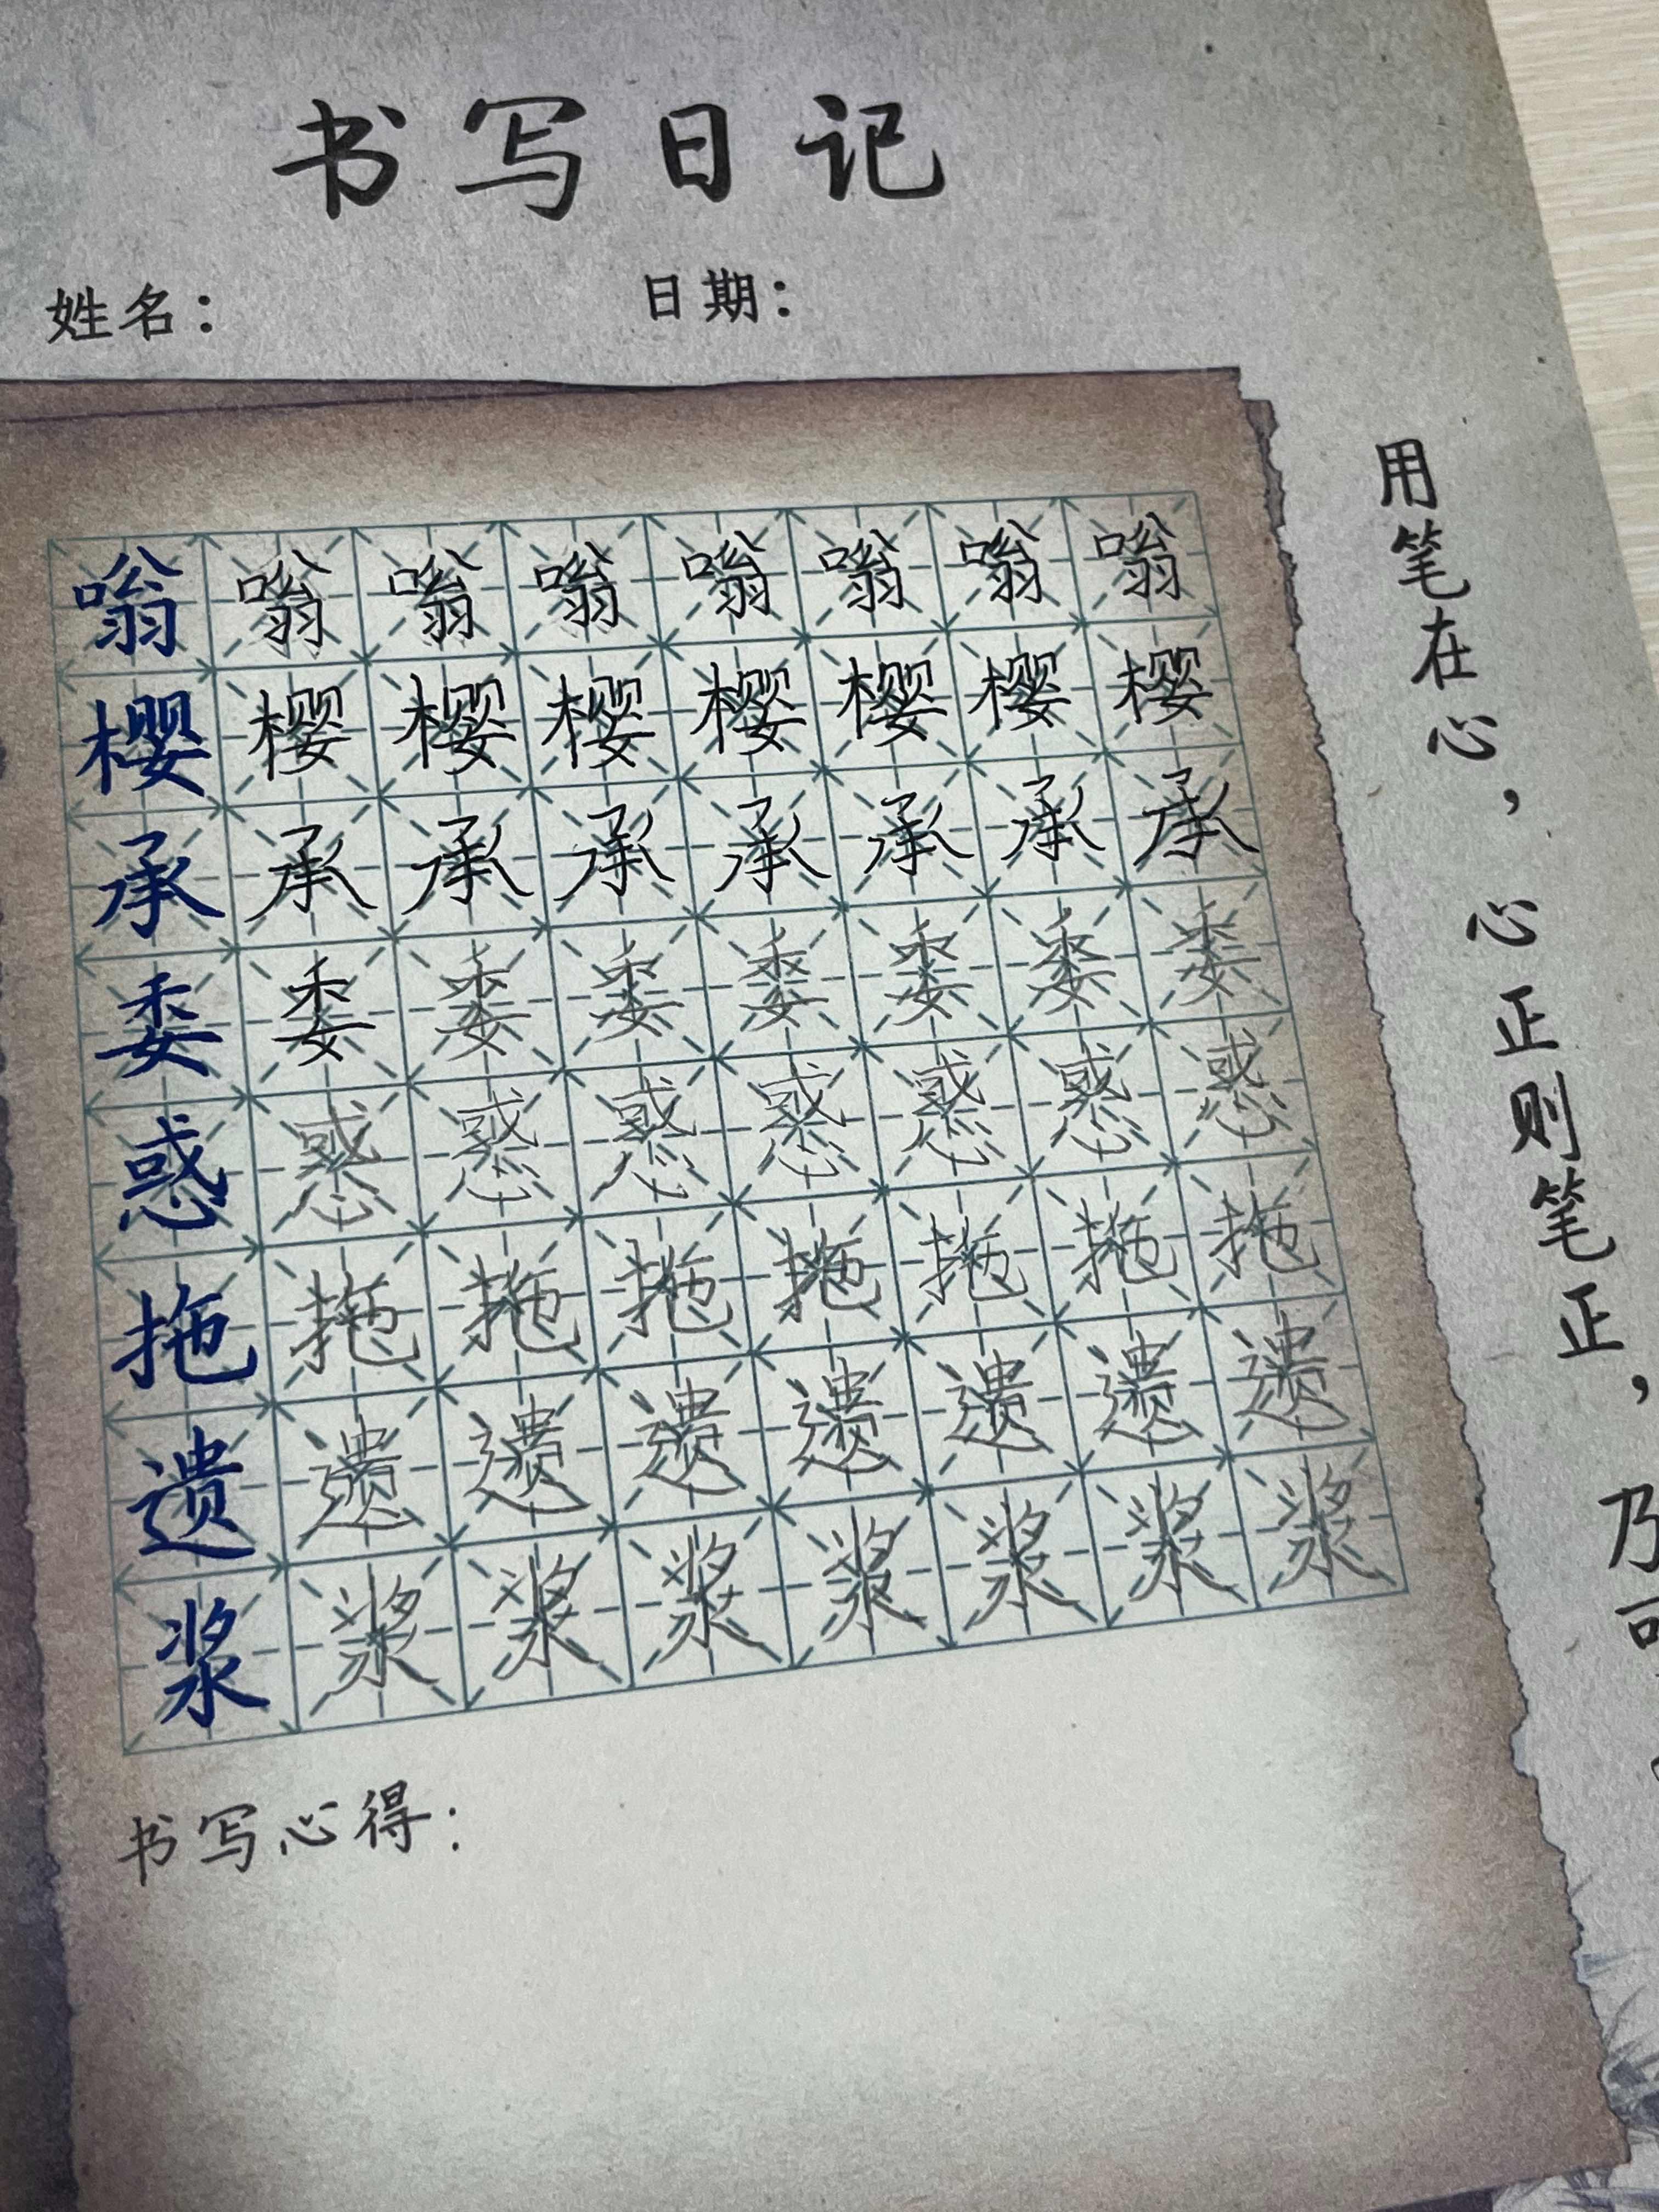 书写日记
姓名： 日期：
嗡嗡嗡嗡嗡嗡嗡嗡
樱樱樱樱樱樱樱樱
承承承承承承承承
委委委委委委委委
惑惑惑惑惑惑惑惑
拖拖拖拖拖拖拖拖
遗遗遗遗遗遗遗遗
浆浆浆浆浆浆浆浆
书写心得：
用笔在心，心正则笔正，乃可